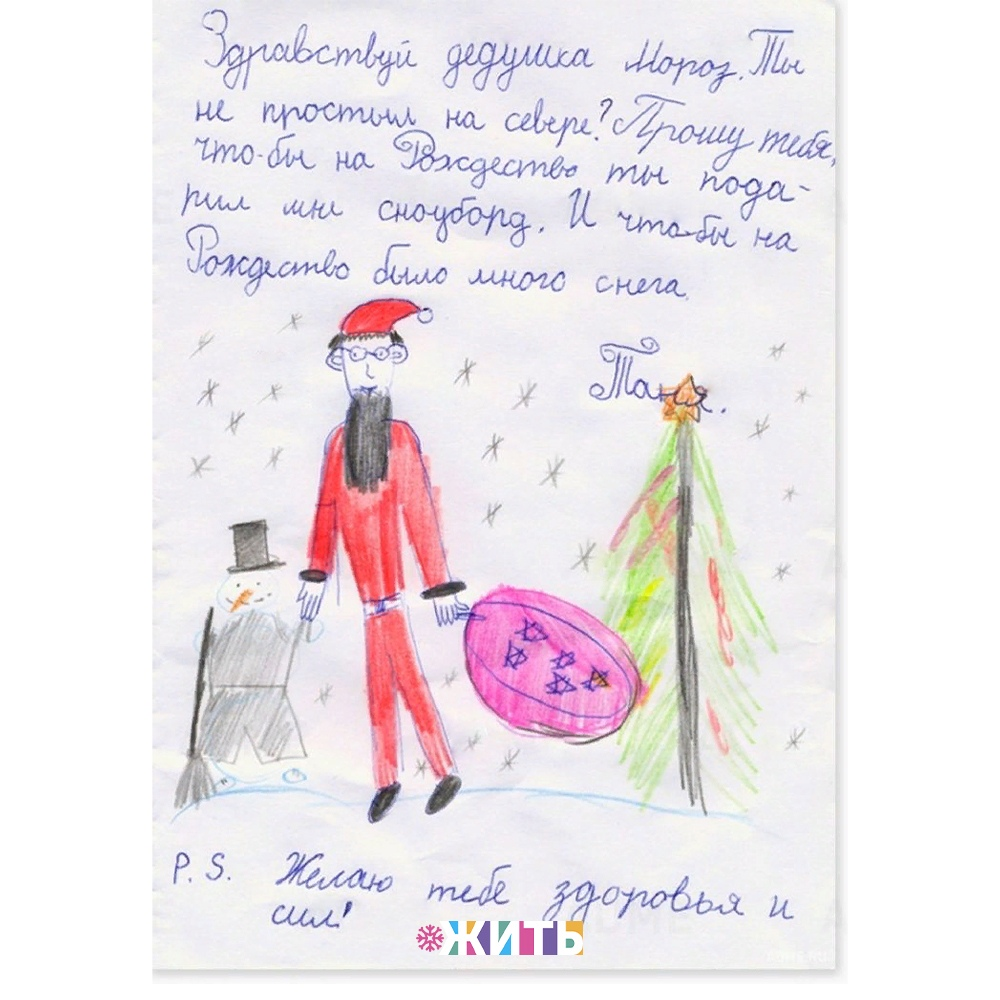 Здравствуй дедушка Мороз. Ты
не простыл на севере? Прошу тебя,
что-бы на Рождество ты пода-
рил мне сноуборд. И что-бы на
Рождество было много снега.
Таня.
P.S. Желаю тебе здоровья и
сил!
ЖИТЬ